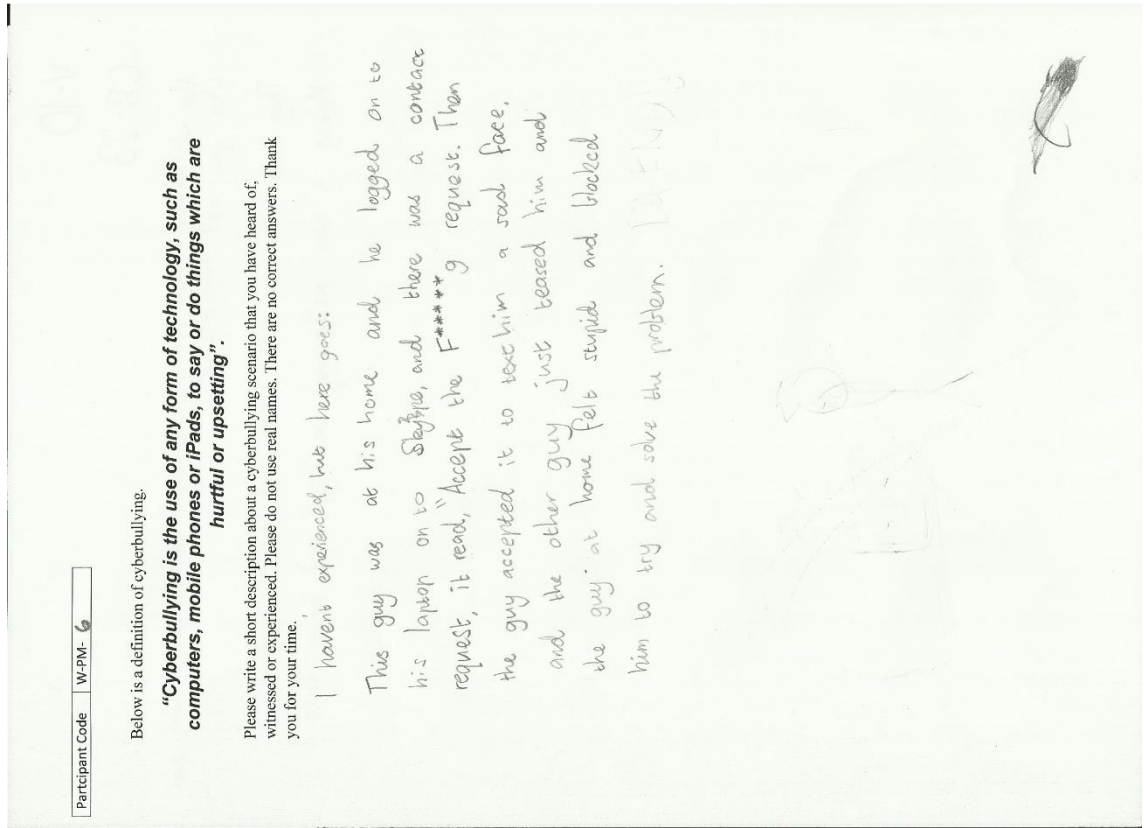 Partcipant Code W-PM- 6
Below is a definition of cyberbullying.
"Cyberbullying is the use of any form of technology, such as
computers, mobile phones or iPads, to say or do things which are
hurtful or upsetting".
Please write a short description about a cyberbullying scenario that you have heard of,
witnessed or experienced. Please do not use real names. There are no correct answers. Thank
you for your time.
I havent experienced, but here goes:
This guy was at his home and he logged on to
his laptop on to Skype, and there was a contact
request, it read, "Accept the F*****g request. Then
the guy accepted it to text him a sad face,
and the other guy just teased him and
the guy at home felt stupid and blocked
him to try and solve the problem.